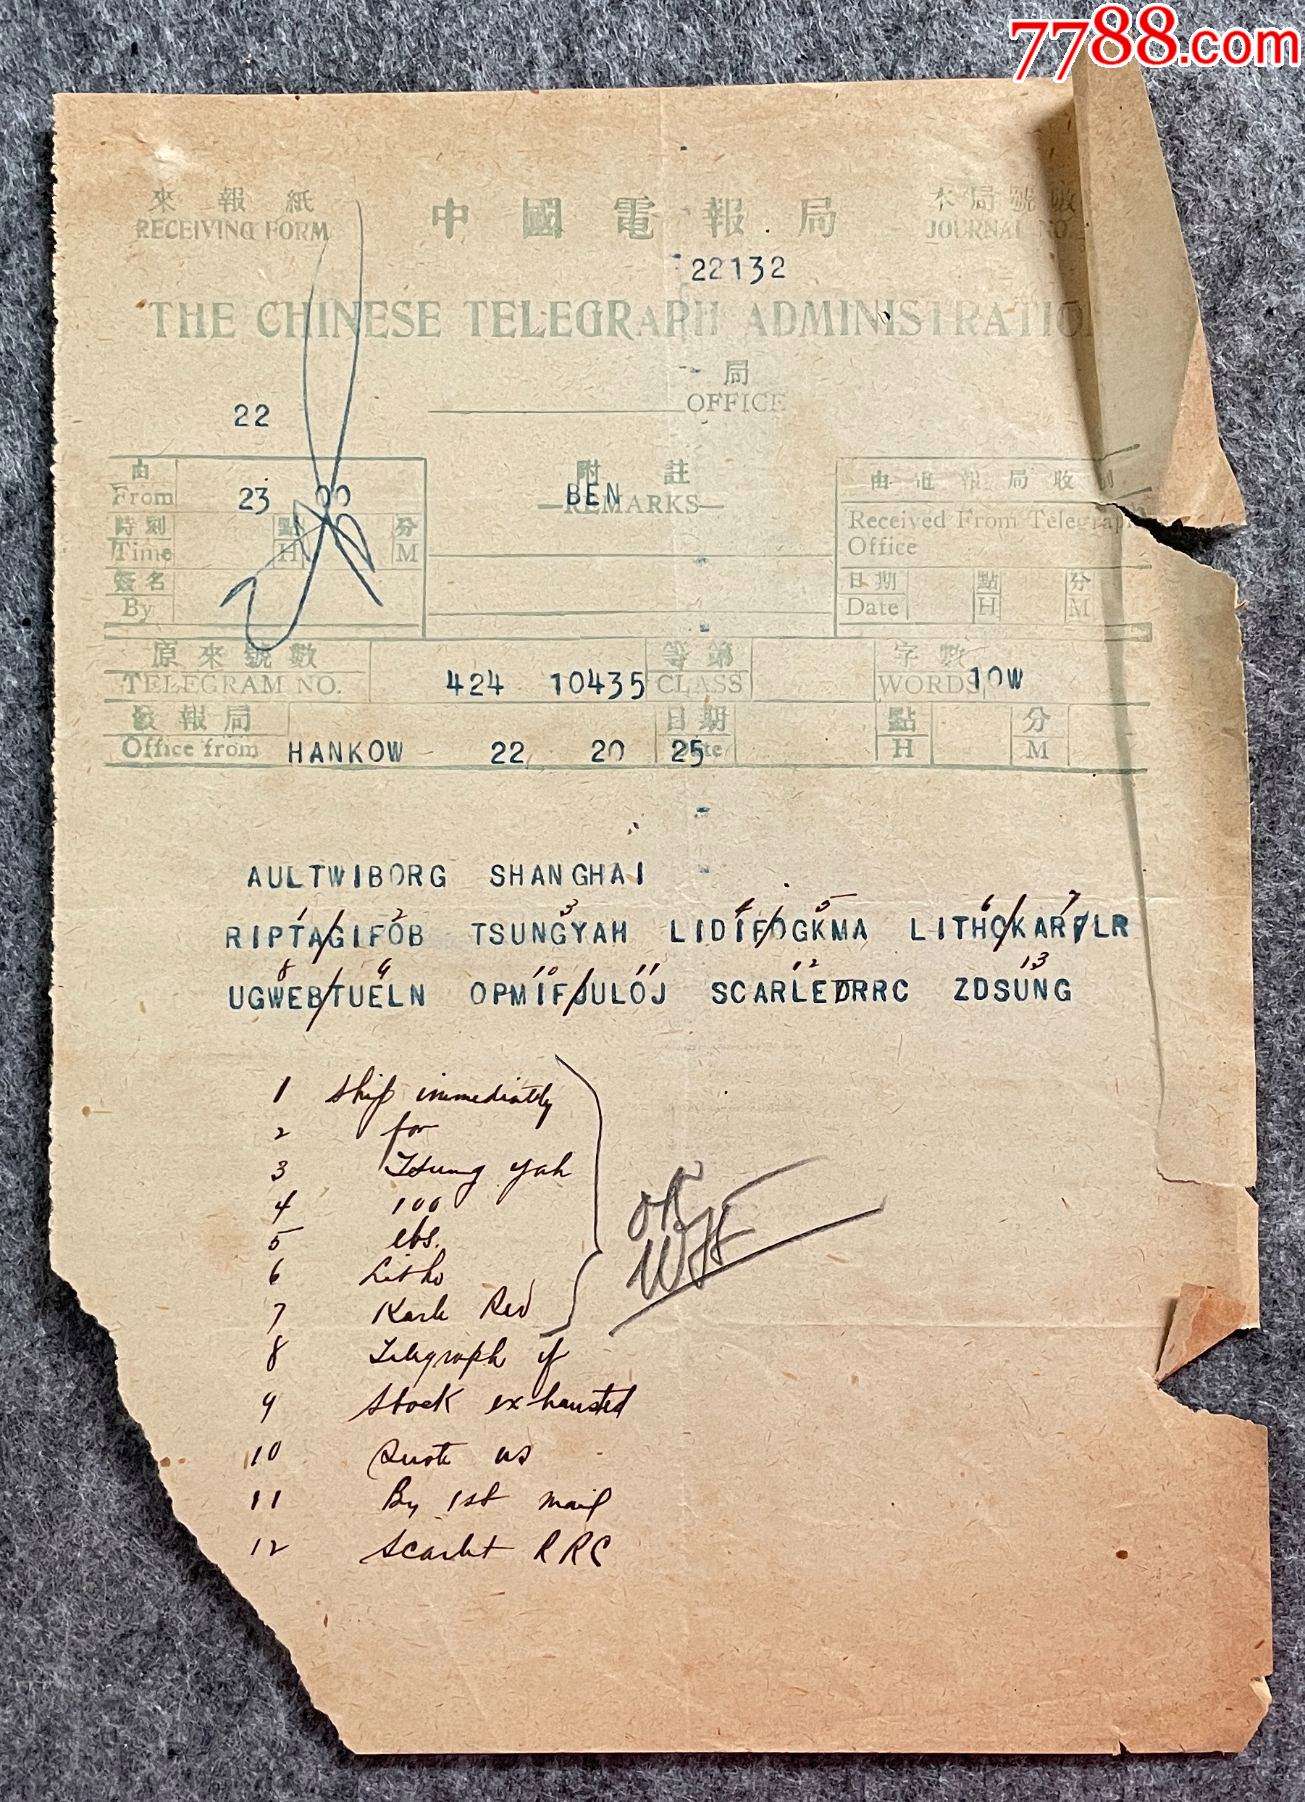 7788.com
來報紙 中國電報局 本局號數
RECEIVING FORM JOURNAL NO
22132
THE CHINESE TELEGRAPH ADMINISTRATION
局
22 OFFICE
由 附註 由 報局收
From 23 00 BEN REMARKS
時刻 點 分 Received From Telegraph
Time H M Office
簽名 日期 點 分
By Date H M
原來號數 等第 字數
TELEGRAM NO. 424 10435 CLASS WORDS 10W
發報局 日期 點 分
Office from HANKOW 22 20 25 Date H M
AULTWIBORG SHANGHAI
1 2 3 4 5 6 7
RIPTAGIFOB TSUNGYAH LIDIFOGKMA LITHOKARFLR
8 9 10 11 12 13
UGWEBTUELN OPMIFJULOJ SCARLEDRRC ZDSUNG
1 Ship immediately
2 for
3 Tsung yah
4 100
5 lbs.
6 Litho
7 Karle Red
OK
8 Telegraph if
9 Stock exhausted
10 Quote us
11 By 1st mail
12 Scarlet RRC